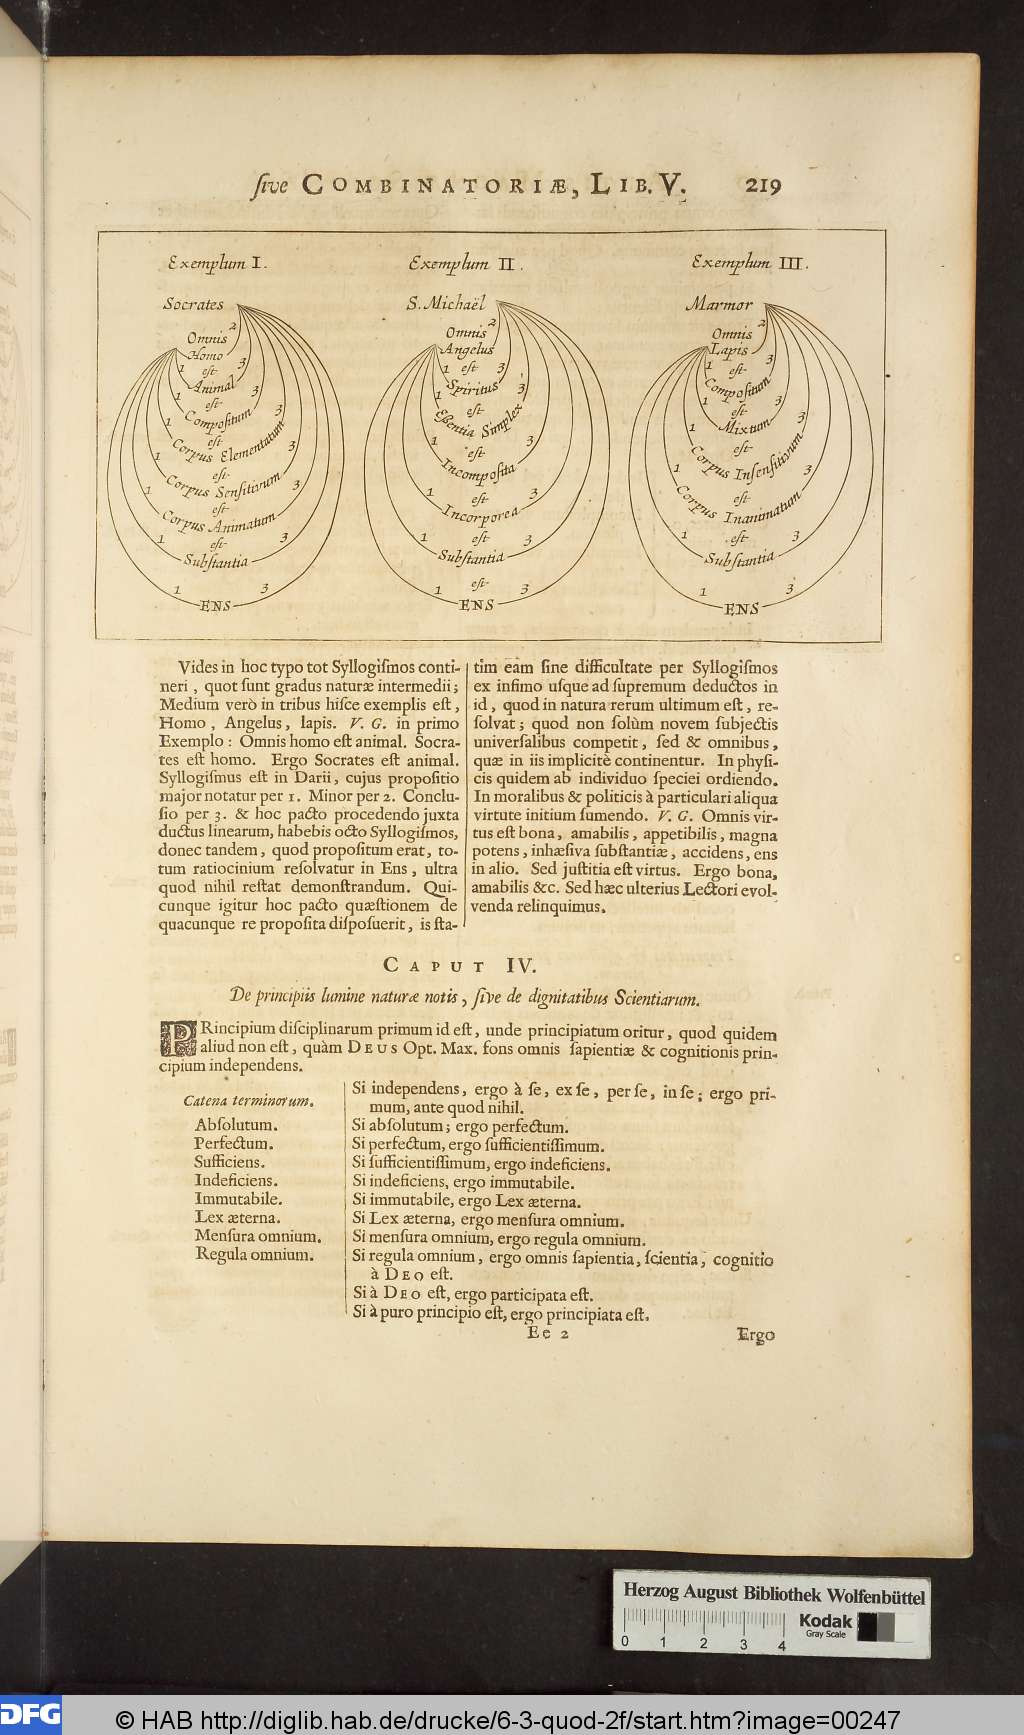 ſive COMBINATORIÆ, LIB. V. 219
Exemplum I.
Socrates
2
Omnis
Homo
1 est 3
Animal
1 est 3
Compositum
1 est 3
Corpus Elementatum
1 est 3
Corpus Sensitivum
1 est 3
Corpus Animatum
1 est 3
Substantia
1 3
ENS
Exemplum II.
S. Michaël
2
Omnis
Angelus
1 est 3
Spiritus
1 est 3
Eßentia Simplex
1 est 3
Incomposita
1 est 3
Incorporea
1 est 3
Substantia
1 est 3
ENS
Exemplum III.
Marmor
2
Omnis
Lapis
1 est 3
Compositum
1 est 3
Mixtum
1 est 3
Corpus Insensitivum
1 est 3
Corpus Inanimatum
1 est 3
Substantia
1 3
ENS
Vides in hoc typo tot Syllogiſmos conti-
neri, quot ſunt gradus naturæ intermedii;
Medium verò in tribus hiſce exemplis eſt,
Homo, Angelus, lapis. V. G. in primo
Exemplo: Omnis homo eſt animal. Socra-
tes eſt homo. Ergo Socrates eſt animal.
Syllogiſmus eſt in Darii, cujus propoſitio
major notatur per 1. Minor per 2. Concluſio
per 3. & hoc pacto procedendo juxta
ductus linearum, habebis octo Syllogiſmos,
donec tandem, quod propoſitum erat, to-
tum ratiocinium reſolvatur in Ens, ultra
quod nihil reſtat demonſtrandum. Qui-
cunque igitur hoc pacto quæſtionem de
quacunque re propoſita diſpoſuerit, is ſta-
tim eam ſine difficultate per Syllogiſmos
ex infimo uſque ad ſupremum deductos in
id, quod in natura rerum ultimum eſt, re-
ſolvat; quod non ſolùm novem ſubjectis
univerſalibus competit, ſed & omnibus,
quæ in iis implicitè continentur. In phyſi-
cis quidem ab individuo ſpeciei ordiendo.
In moralibus & politicis à particulari aliqua
virtute initium ſumendo. V. G. Omnis vir-
tus eſt bona, amabilis, appetibilis, magna
potens, inhæſiva ſubſtantiæ, accidens, ens
in alio. Sed juſtitia eſt virtus. Ergo bona,
amabilis &c. Sed hæc ulterius Lectori evol-
venda relinquimus.
CAPUT IV.
De principiis lumine naturæ notis, ſive de dignitatibus Scientiarum.
PRincipium diſciplinarum primum id eſt, unde principiatum oritur, quod quidem
aliud non eſt, quàm DEUS Opt. Max. fons omnis ſapientiæ & cognitionis prin-
cipium independens.
Catena terminorum.
Abſolutum.
Perfectum.
Sufficiens.
Indeficiens.
Immutabile.
Lex æterna.
Menſura omnium.
Regula omnium.
Si independens, ergo à ſe, ex ſe, per ſe, in ſe; ergo pri-
mum, ante quod nihil.
Si abſolutum; ergo perfectum.
Si perfectum, ergo ſufficientiſſimum.
Si ſufficientiſſimum, ergo indeficiens.
Si indeficiens, ergo immutabile.
Si immutabile, ergo Lex æterna.
Si Lex æterna, ergo menſura omnium.
Si menſura omnium, ergo regula omnium.
Si regula omnium, ergo omnis ſapientia, ſcientia, cognitio
à DEO eſt.
Si à DEO eſt, ergo participata eſt.
Si à puro principio eſt, ergo principiata eſt.
Ee 2 Ergo
Herzog August Bibliothek Wolfenbüttel
0 1 2 3 4
Kodak
Gray Scale
DFG © HAB http://diglib.hab.de/drucke/6-3-quod-2f/start.htm?image=00247